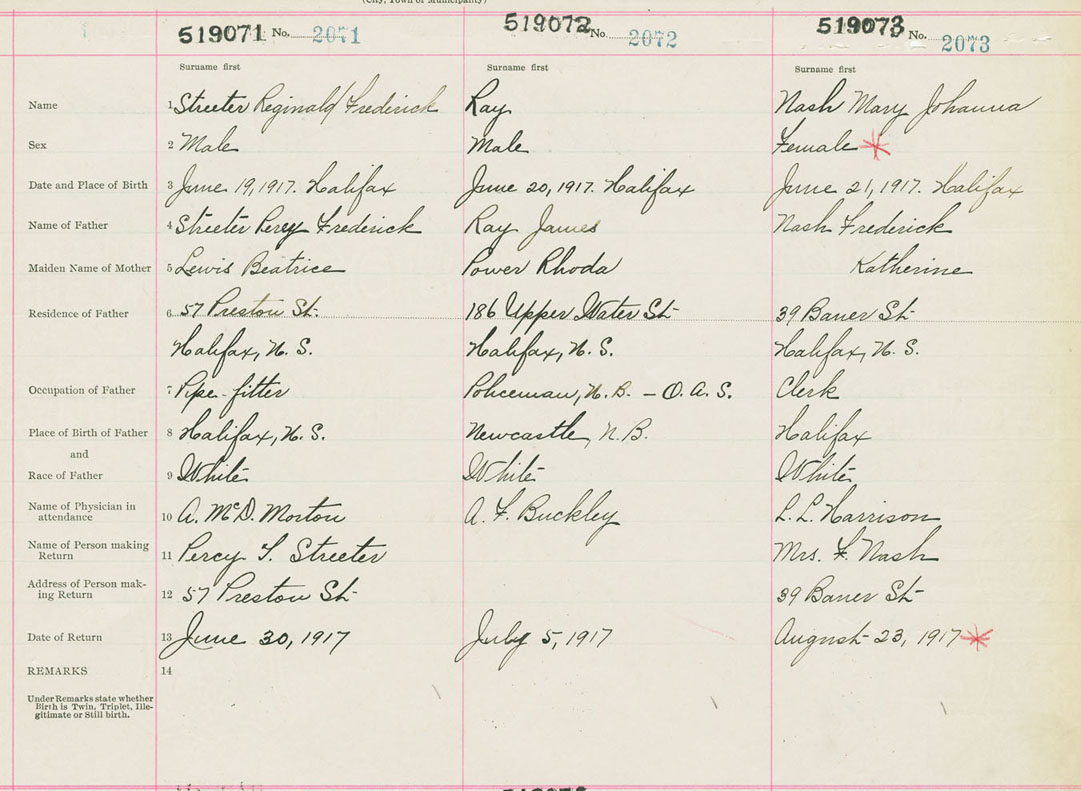 (City, Town or Municipality)
519071 No. 2071 519072 No. 2072 519073 No. 2073
Surname first Surname first Surname first
Name 1 Streeter Reginald Frederick Ray Nash Mary Johanna
Sex 2 Male Male Female
Date and Place of Birth 3 June 19, 1917. Halifax June 20, 1917. Halifax June 21, 1917. Halifax
Name of Father 4 Streeter Percy Frederick Ray James Nash Frederick
Maiden Name of Mother 5 Lewis Beatrice Power Rhoda Katherine
Residence of Father 6 57 Preston St. 186 Upper Water St. 39 Bauer St.
Halifax, N.S. Halifax, N.S. Halifax, N.S.
Occupation of Father 7 Pipe-fitter Policeman, N.B. - O.A.S. Clerk
Place of Birth of Father 8 Halifax, N.S. Newcastle, N.B. Halifax
and
Race of Father 9 White White White
Name of Physician in
attendance 10 A. McD. Morton A. F. Buckley L. L. Harrison
Name of Person making
Return 11 Percy F. Streeter Mrs. F. Nash
Address of Person mak-
ing Return 12 57 Preston St. 39 Bauer St.
Date of Return 13 June 30, 1917 July 5, 1917 August 23, 1917
REMARKS 14
Under Remarks state whether
Birth is Twin, Triplet, Ille-
gitimate or Still birth.